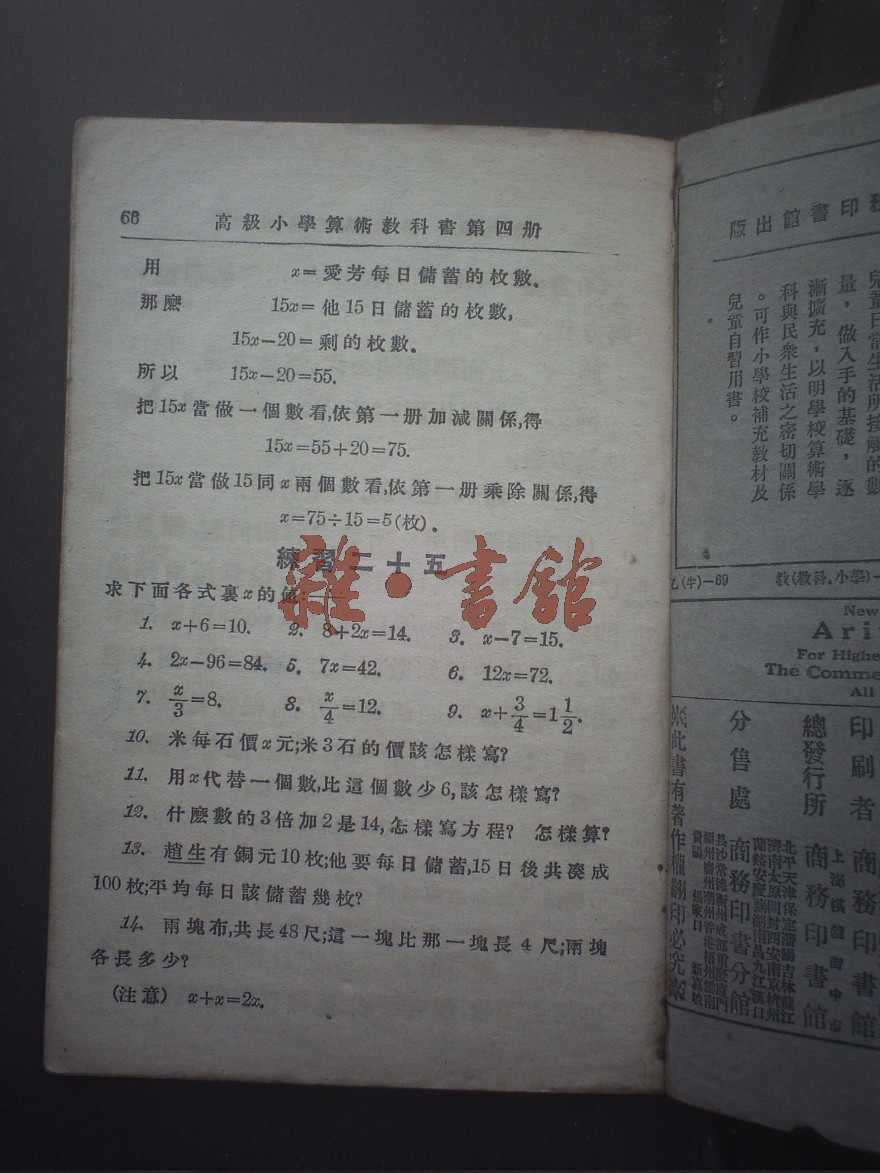 66 高級小學算術教科書第四册
用 x=愛芳每日儲蓄的枚數。
那麽 15x=他15日儲蓄的枚數,
15x-20=剩的枚數。
所以 15x-20=55.
把15x當做一個數看,依第一册加減關係,得
15x=55+20=75.
把15x當做15同x兩個數看,依第一册乘除關係,得
x=75÷15=5(枚)。
練習二十五
求下面各式裏x的值:—
1. x+6=10. 2. 8+2x=14. 3. x-7=15.
4. 2x-96=84. 5. 7x=42. 6. 12x=72.
7. x/3=8. 8. x/4=12. 9. x+3/4=1 1/2.
10. 米每石價x元;米3石的價該怎樣寫?
11. 用x代替一個數,比這個數少6,該怎樣寫?
12. 什麽數的3倍加2是14,怎樣寫方程? 怎樣算?
13. 趙生有銅元10枚;他要每日儲蓄,15日後共凑成
100枚;平均每日該儲蓄幾枚?
14. 兩塊布,共長48尺;這一塊比那一塊長4尺;兩塊
各長多少?
(注意) x+x=2x.
雜·書館
印書館出版
量,做入手的基礎,逐
漸擴充,以明學校算術學
科與民衆生活之密切關係
。可作小學校補充教材及
兒童自習用書。
教(教科.小學)-
乙(牛)-69
New
Ari
For Highe
The Comme
All
印刷者 商務印書館
總發行所 上海棋盤街中市 商務印書館
分售處 商務印書分館
此書有著作權翻印必究